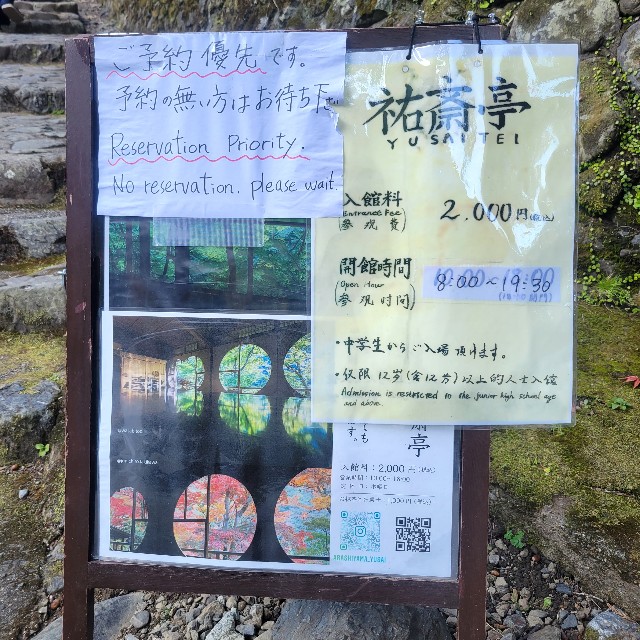 ご予約優先です。
予約の無い方はお待ち下
Reservation Priority.
No reservation. please wait.
祐斎亭
YUSAITEI
入館料
Entrance Fee
(参观費)
2.000円(税込)
開館時間
Open Hour
(参观时间)
8:00~19:30
・中学生からご入場頂けます。
・仅限12岁(含12岁)以上的人士入館
Admission is restricted to the junior high school age
and above.
斎亭
入館料:2,000円(税込)
営業時間:10:00-18:00
ARASHIYAMA.YUSAI